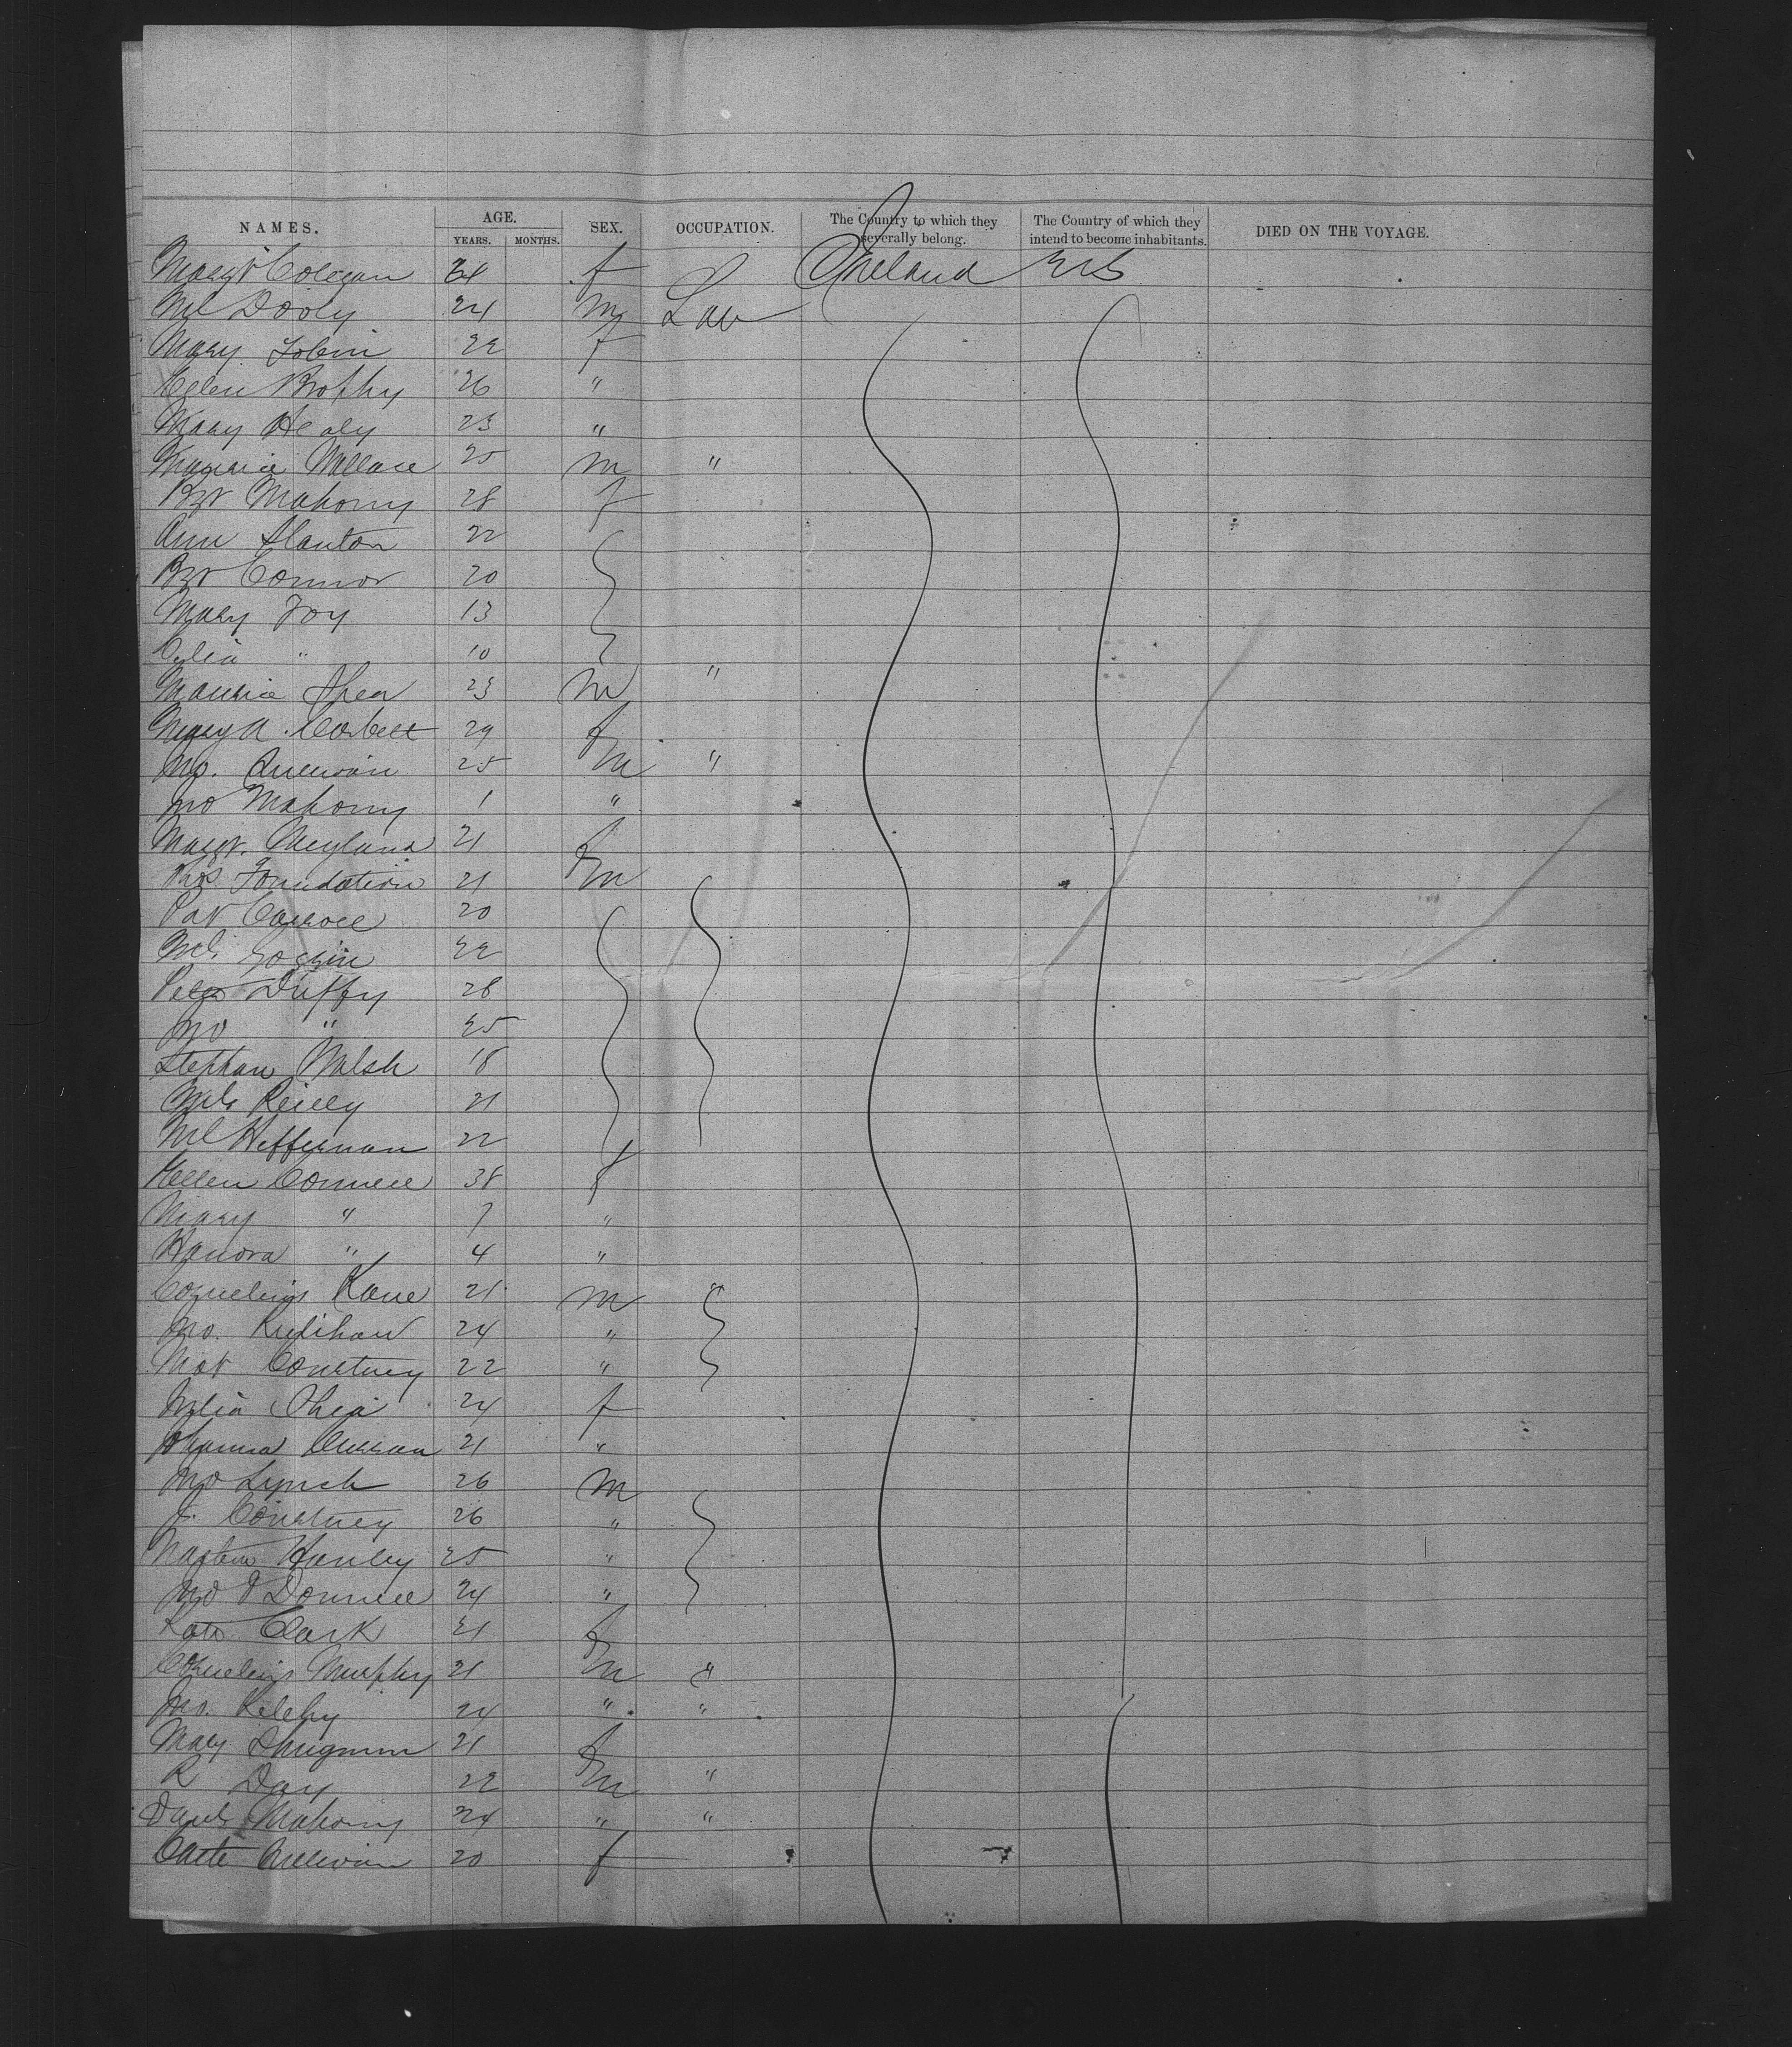 NAMES. AGE. YEARS. MONTHS. SEX. OCCUPATION. The Country to which they severally belong. The Country of which they intend to become inhabitants. DIED ON THE VOYAGE.
Margt Colegan 24 f Ireland US
Ml Dooly 24 m Lab
Mary Tobin 22 f
Ellen Brophy 26 "
Mary Healy 23 "
Maurice Wallace 25 m "
Bgt Mahony 28 f
Ann Stanton 22
Bgt Connor 20
Mary Foy 13
Celia " 10
Maurice Shea 23 m "
Mary A. Corbett 29 f
Jno. Sullivan 25 m "
Jno Mahony 1 "
Margt. Neyland 21 f
Thos Foundation 21 m
Pat Carroll 20
Ml. 22
Peter Duffy 28
Jno " 25
Stephan Walsh 18
Ml Reilly 21
Ml Heffernan 22
Hellen Connell 38 f
Mary " 7 "
Hanora " 4 "
Cornelius Kane 21 m "
Jno. 24 "
Mat Courtney 22 "
Julia Shea 24 f
Johanna Curran 21 "
Jno Lynch 26 m
J. Courtney 26 "
Martin Hanley 25 "
Jno O'Donnell 24 "
Kate Clark 21 f
Cornelius Murphy 21 m "
Jno. Kelehy 24 " "
Mary 21 f
R Day 22 m "
Danl Mahony 24 " "
Cate Sullivan 20 f